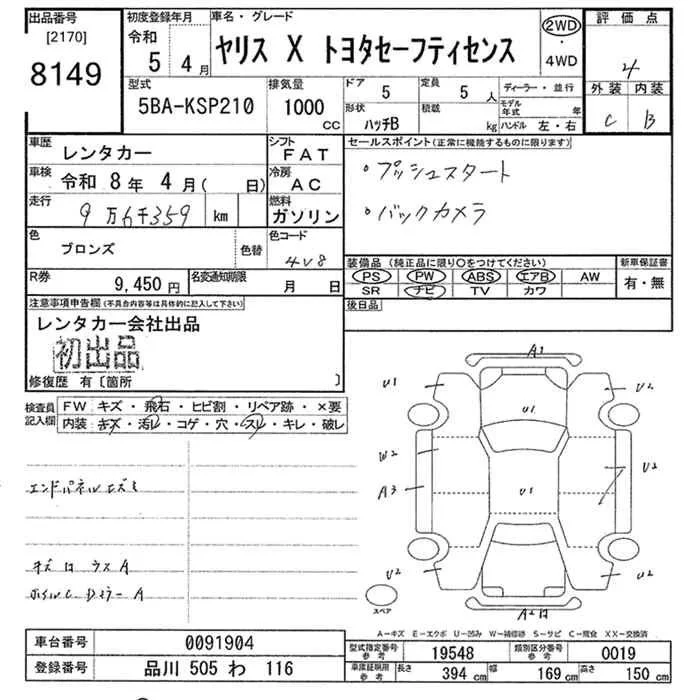 出品番号
[2170]
8149
初度登録年月
令和
5 4月
車名・グレード
ヤリス X トヨタセーフティセンス
2WD
・
4WD
評価点
4
外装 内装
C B
型式
5BA-KSP210
排気量
1000
CC
ドア 5
形状 ハッチB
定員 5 人
積載 kg
ディーラー・並行
モデル年式 年
ハンドル 左・右
車歴
レンタカー
シフト
FAT
車検
令和 8年 4月( 日)
冷房
AC
走行
9万6千359 km
燃料
ガソリン
色
ブロンズ
色替
色コード
4V8
R券
9,450円
名変通知期限
月 日
セールスポイント(正常に機能するものに限ります)
・プッシュスタート
・バックカメラ
装備品(純正品に限り〇をつけてください)
PS PW ABS エアB AW
SR ナビ TV カワ
新車保証書
有・無
後日品
注意事項申告欄(不具合内容等は具体的に記入して下さい)
レンタカー会社出品
初出品
修復歴 有〔箇所 〕
検査員
記入欄
FW キズ・飛石・ヒビ割・リペア跡・×要
内装 キズ・汚レ・コゲ・穴・スレ・キレ・破レ
A1
U1
U2
U1
W2
A3
U1
U2
U2
U2
スペア
A-キズ E-エクボ U-凹み W-補修跡 S-サビ C-腐食 XX-交換済
車台番号
0091904
登録番号
品川 505 わ 116
型式指定番号
参考
19548
類別区分番号
参考
0019
車庫証明用
参考
長さ 394 cm
幅 169 cm
高さ 150 cm